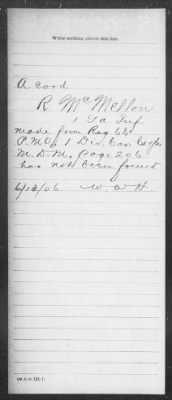 Write nothing above this line.
A card
R. McMellon
1 Ia Inf.
made from Reg 63
P.M.O. 1 Div. Cav. Corps
M.D.M. page 206
has not been found
6/13/06 W.W.H.